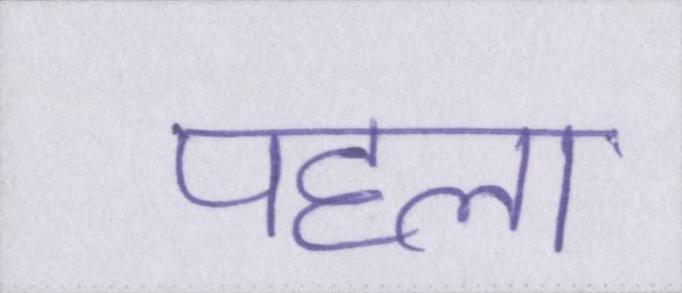 पहला